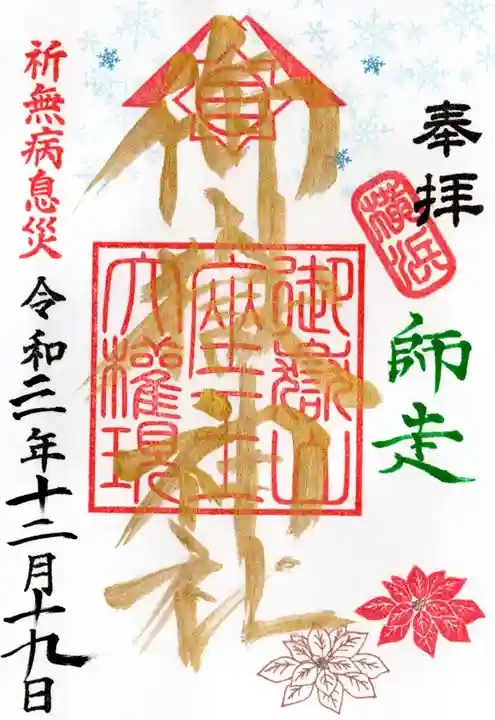 奉拝
横浜
師走
御嶽神社
御嶽山
座王
大權現
祈無病息災
令和三年十二月十九日